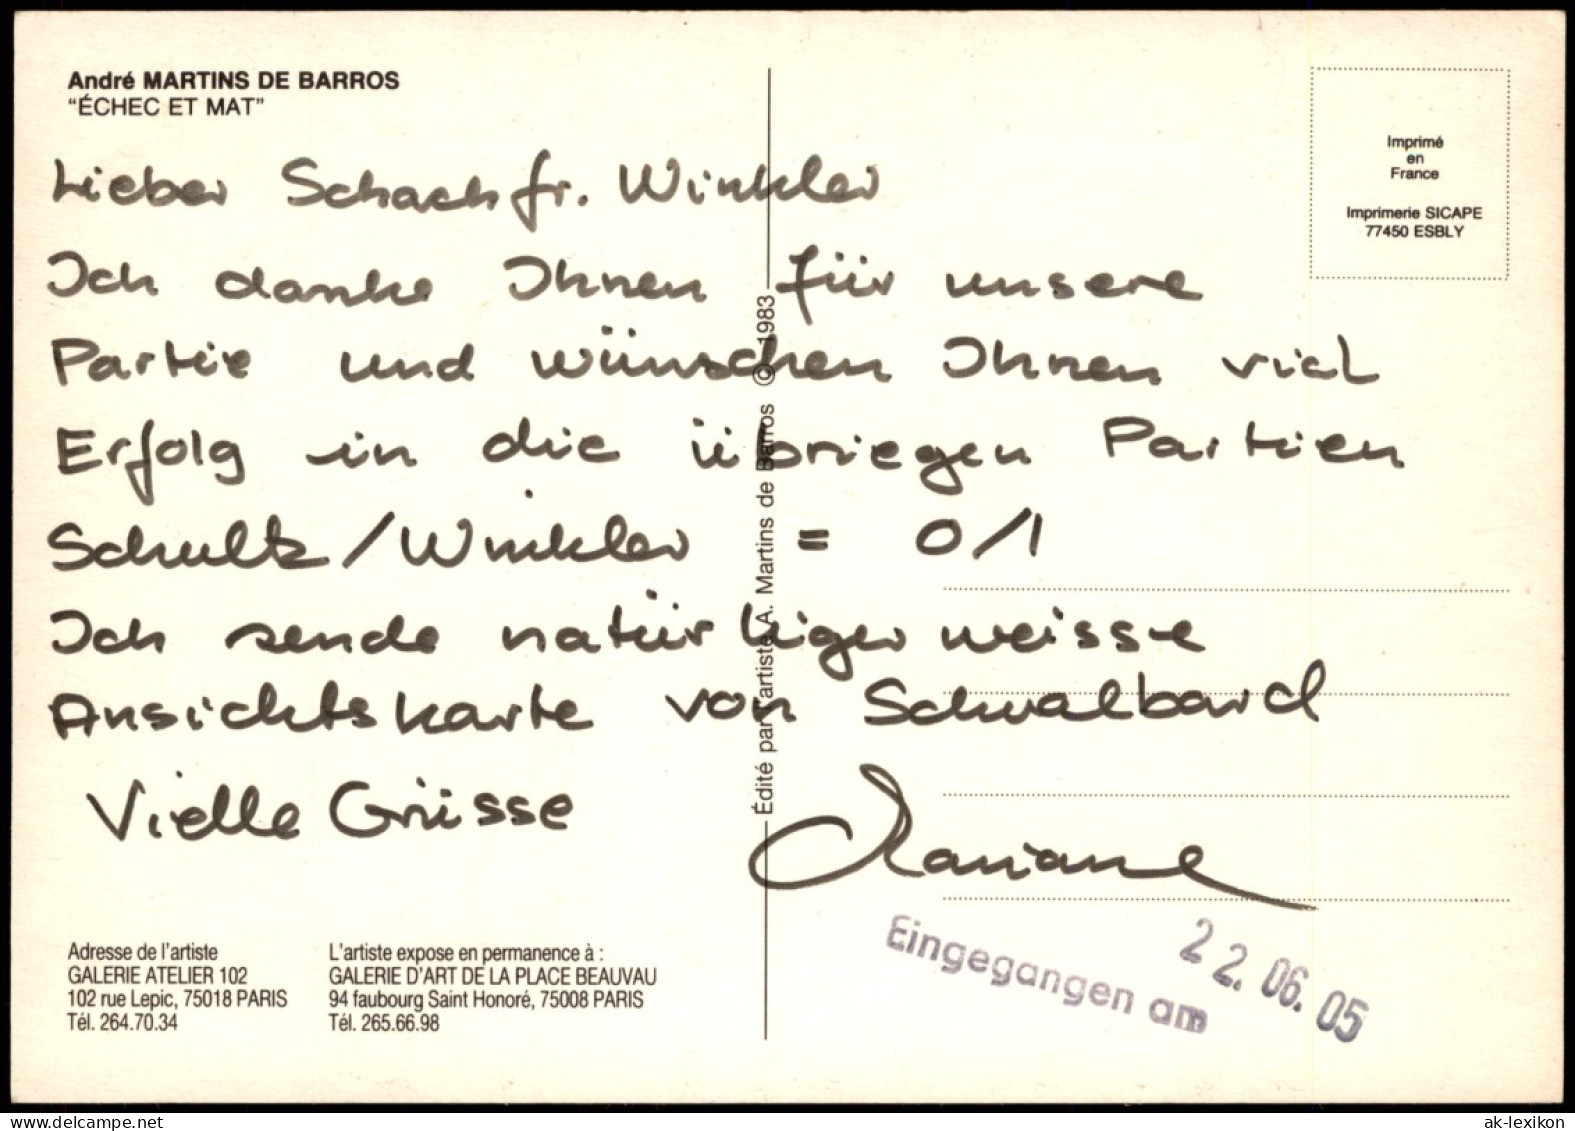 André MARTINS DE BARROS
"ÉCHEC ET MAT"
Imprimé
en
France
Imprimerie SICAPE
77450 ESBLY
Lieber Schachfr. Winkler
Ich danke Ihnen für unsere
Partie und wünschen Ihnen viel
Erfolg in die übriegen Partien
Schultz/Winkler = 0/1
Ich sende natürligerweisse
Ansichtskarte von Schvalbard
Vielle Grüsse
Mariane
Édité par l'artiste A. Martins de Barros © 1983
Adresse de l'artiste
GALERIE ATELIER 102
102 rue Lepic, 75018 PARIS
Tél. 264.70.34
L'artiste expose en permanence à :
GALERIE D'ART DE LA PLACE BEAUVAU
94 faubourg Saint Honoré, 75008 PARIS
Tél. 265.66.98
Eingegangen am 22.06.05
ak-lexikon